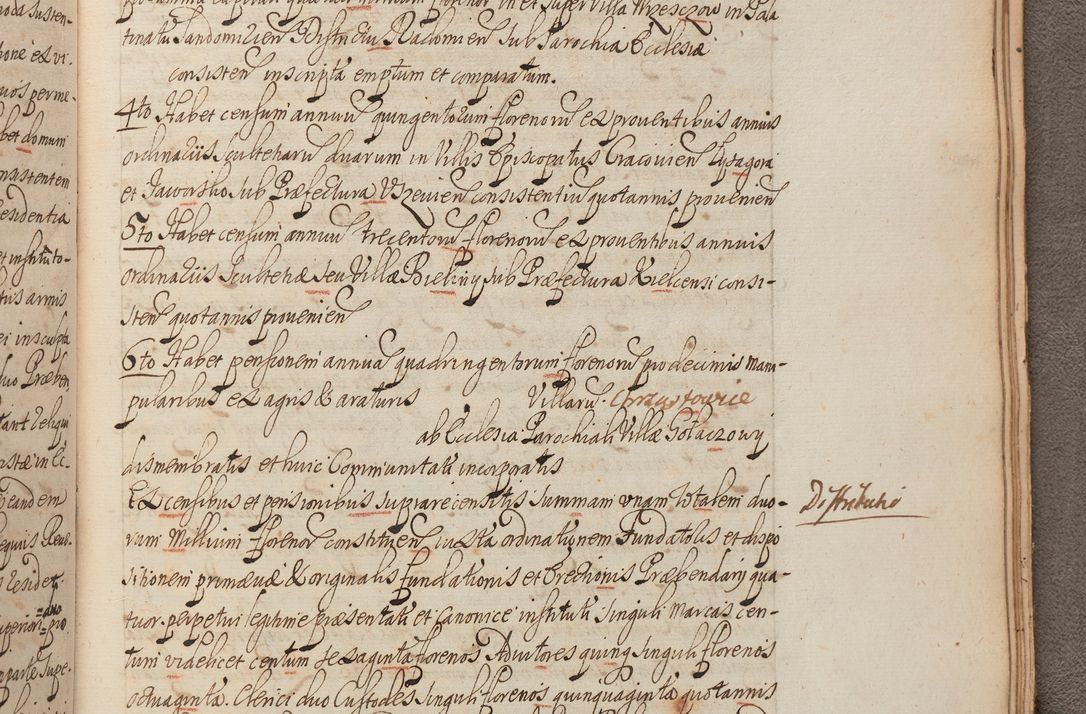 tinatu Sandomirien Districtu Radomien Sub Parochia Ecclesiæ
consisten inscripta emptum et comparatum.
4to Habet censum annuu quingentorum florenoru ex proventibus annuis
ordinariis Scultetiaru duarum in Villis Episcopatus Cracovien
et Jaworsko Sub Præfectura Uszevien consistentiu quotannis provenien
5to Habet censum annuu trecentoru florenoru ex proventibus annuis
ordinariis Scultetiæ seu Villæ Bieliny sub Præfectura Kielcensi consi-
sten quotannis provenien
6to Habet pensionem annua quadringentorum florenoru pro decimis mani-
pularibus ex agris & araturis Villaru Chrząstowice
ab Ecclesia Parochiali Villæ Gołaczowy
dismembratis et huic Communitati incorporatis
Ex censibus et pensionibus suprarecensitis summam unam totalem duo-
rum Millium floreno constituen iuxta ordinationem Fundatoris et dispo
sitionem primævæ & originalis fundationis et Erectionis Præbendarij qua-
tuor perpetui legitime præsentati et Canonice instituti singuli marcas cen-
tum videlicet centum sexaginta florenos Adiutores quinq singuli florenos
octuaginta. Clerici duo Custodes singuli florenos quinquaginta quotannis
Distributio
hone ex vi-
bet domum
nsistentem
residentia
et instituto-
tus armis
ei insculpta
duo Præben
tant Religui
eandem